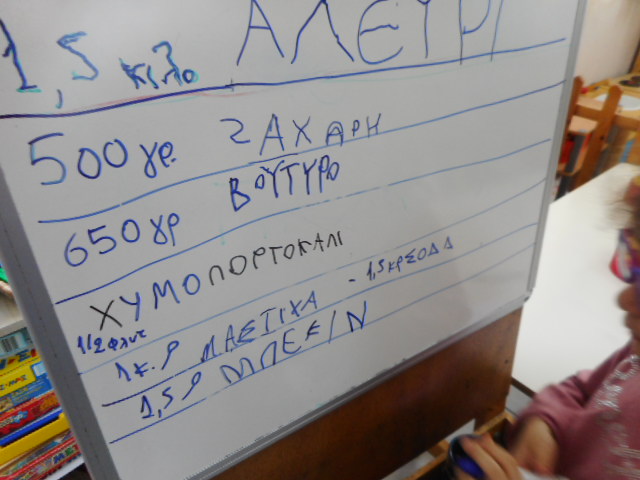 1,5 κιλο ΑΛΕΥΡΙ
500 γρ. ΖΑΧΑΡΗ
650 γρ ΒΟΥΤΥΡΟ
ΧΥΜΟ ΠΟΡΤΟΚΑΛΙ
1/2 φλυτ
1 κ. ρ ΜΑΣΤΙΧΑ - 1,5 κρ ΣΟΔΔ
1,5 ρ ΜΠΕΚΙΝ